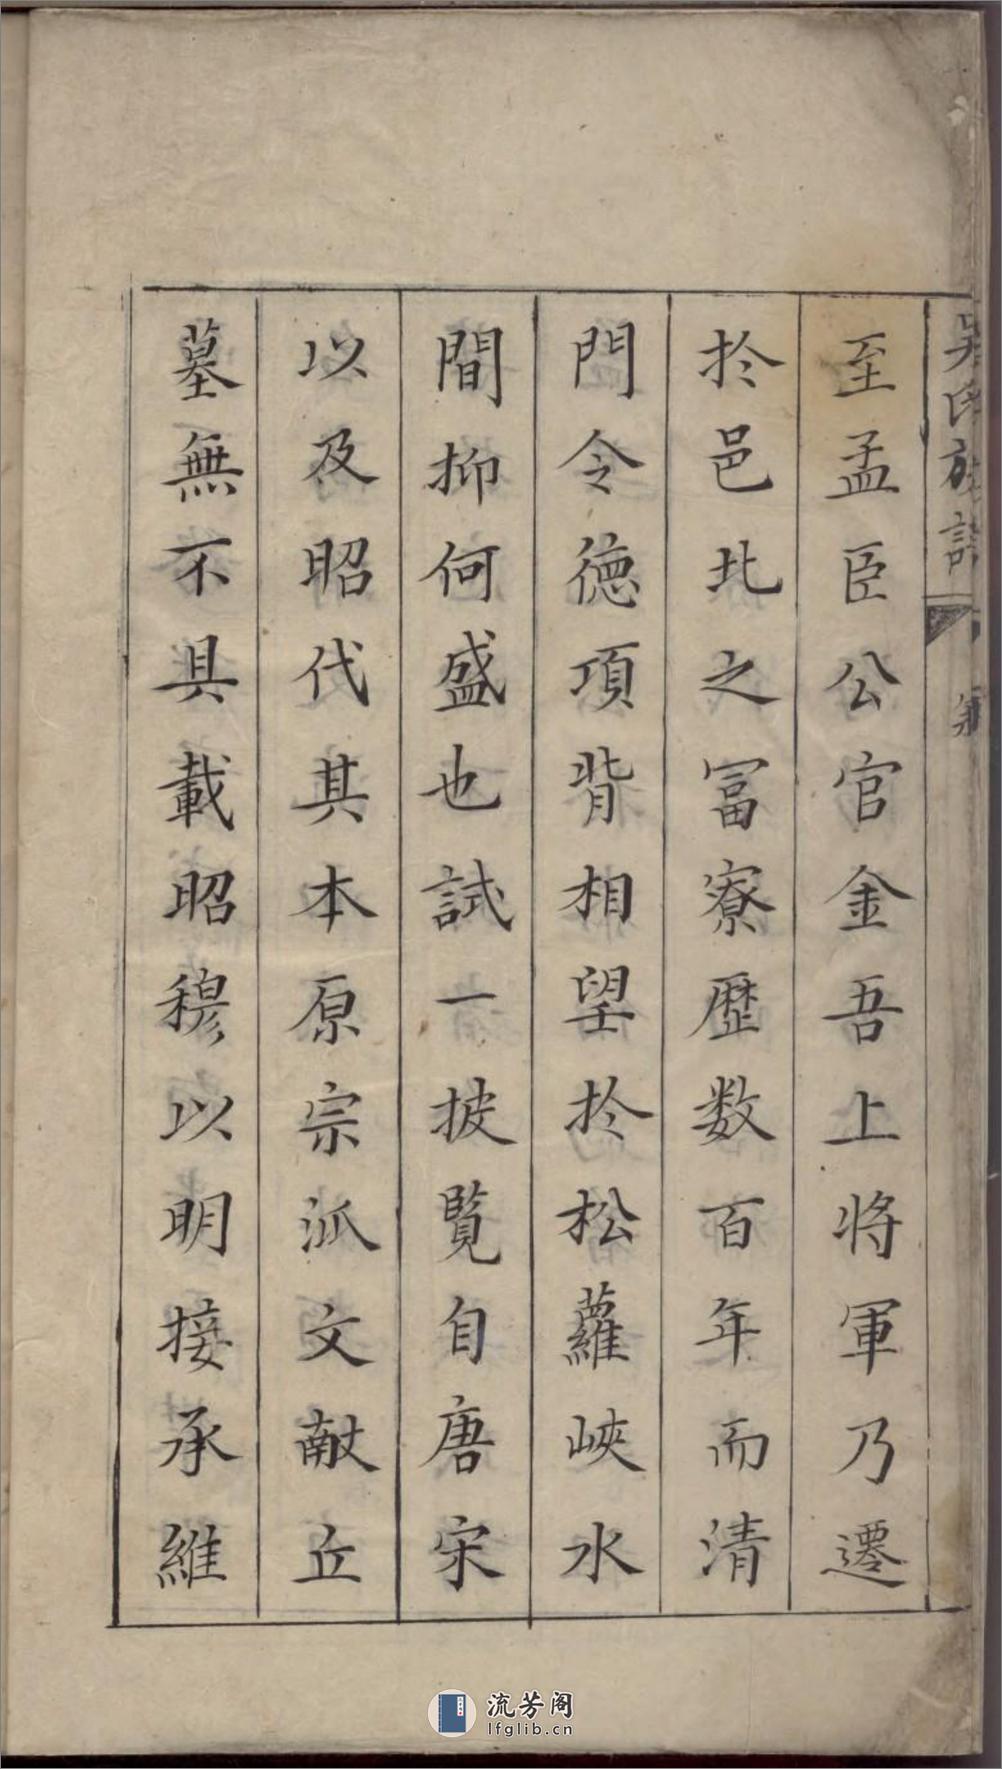 吳氏族譜
至孟臣公官金吾上将軍乃遷
扵邑北之冨寮歴数百年而清
門令德項背相望扵松蘿峽水
間抑何盛也試一披覧自唐宋
以及昭代其本原宗派文献丘
墓無不具載昭穆以明接承維
流芳阁
lfglib.cn